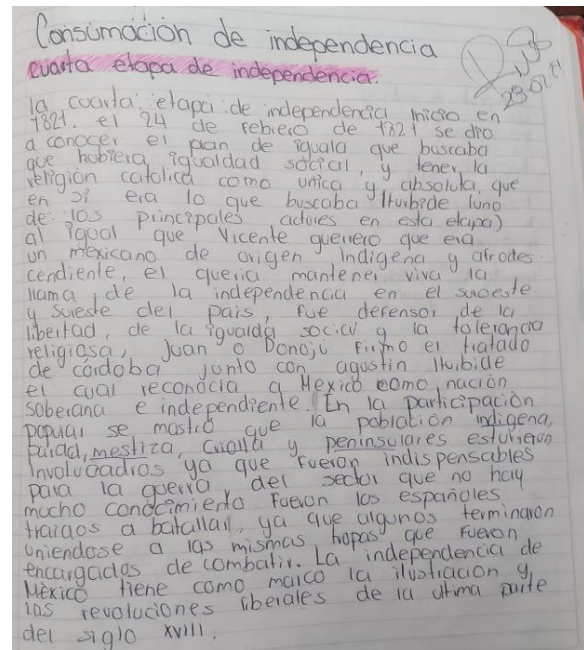 Consumación de independencia
cuarta etapa de independencia.
28-02-
la cuarta etapa de independencia inicio en
1821. el 24 de febrero de 1821 se dio
a conocer el plan de iguala que buscaba
que hubiera igualdad social, y tener la
religión catolica como unica y absoluta, que
en si era lo que buscaba Iturbide (uno
de los principales actores en esta etapa)
al igual que Vicente guerrero que era
un mexicano de origen indigena y afrodes-
cendiente, el queria mantener viva la
llama de la independencia en el suroeste
y sureste del pais, fue defensor de la
libertad, de la igualda social y la tolerancia
religiosa, Juan o Donojú firmo el tratado
de córdoba junto con agustin Iturbide
el cual reconocia a Mexico como nación
soberana e independiente. En la participación
popular se mostró que la población indigena,
mestiza, criolla y peninsulares estuvieron
involucadros ya que fueron indispensables
para la guerra, del sector que no hay
mucho conocimiento fueron los españoles
traidos a batallar, ya que algunos terminaron
uniendose a las mismas tropas que fueron
encargados de combatir. La independencia de
México tiene como marco la ilustración y
las revoluciones liberales de la ultima parte
del siglo XVIII.